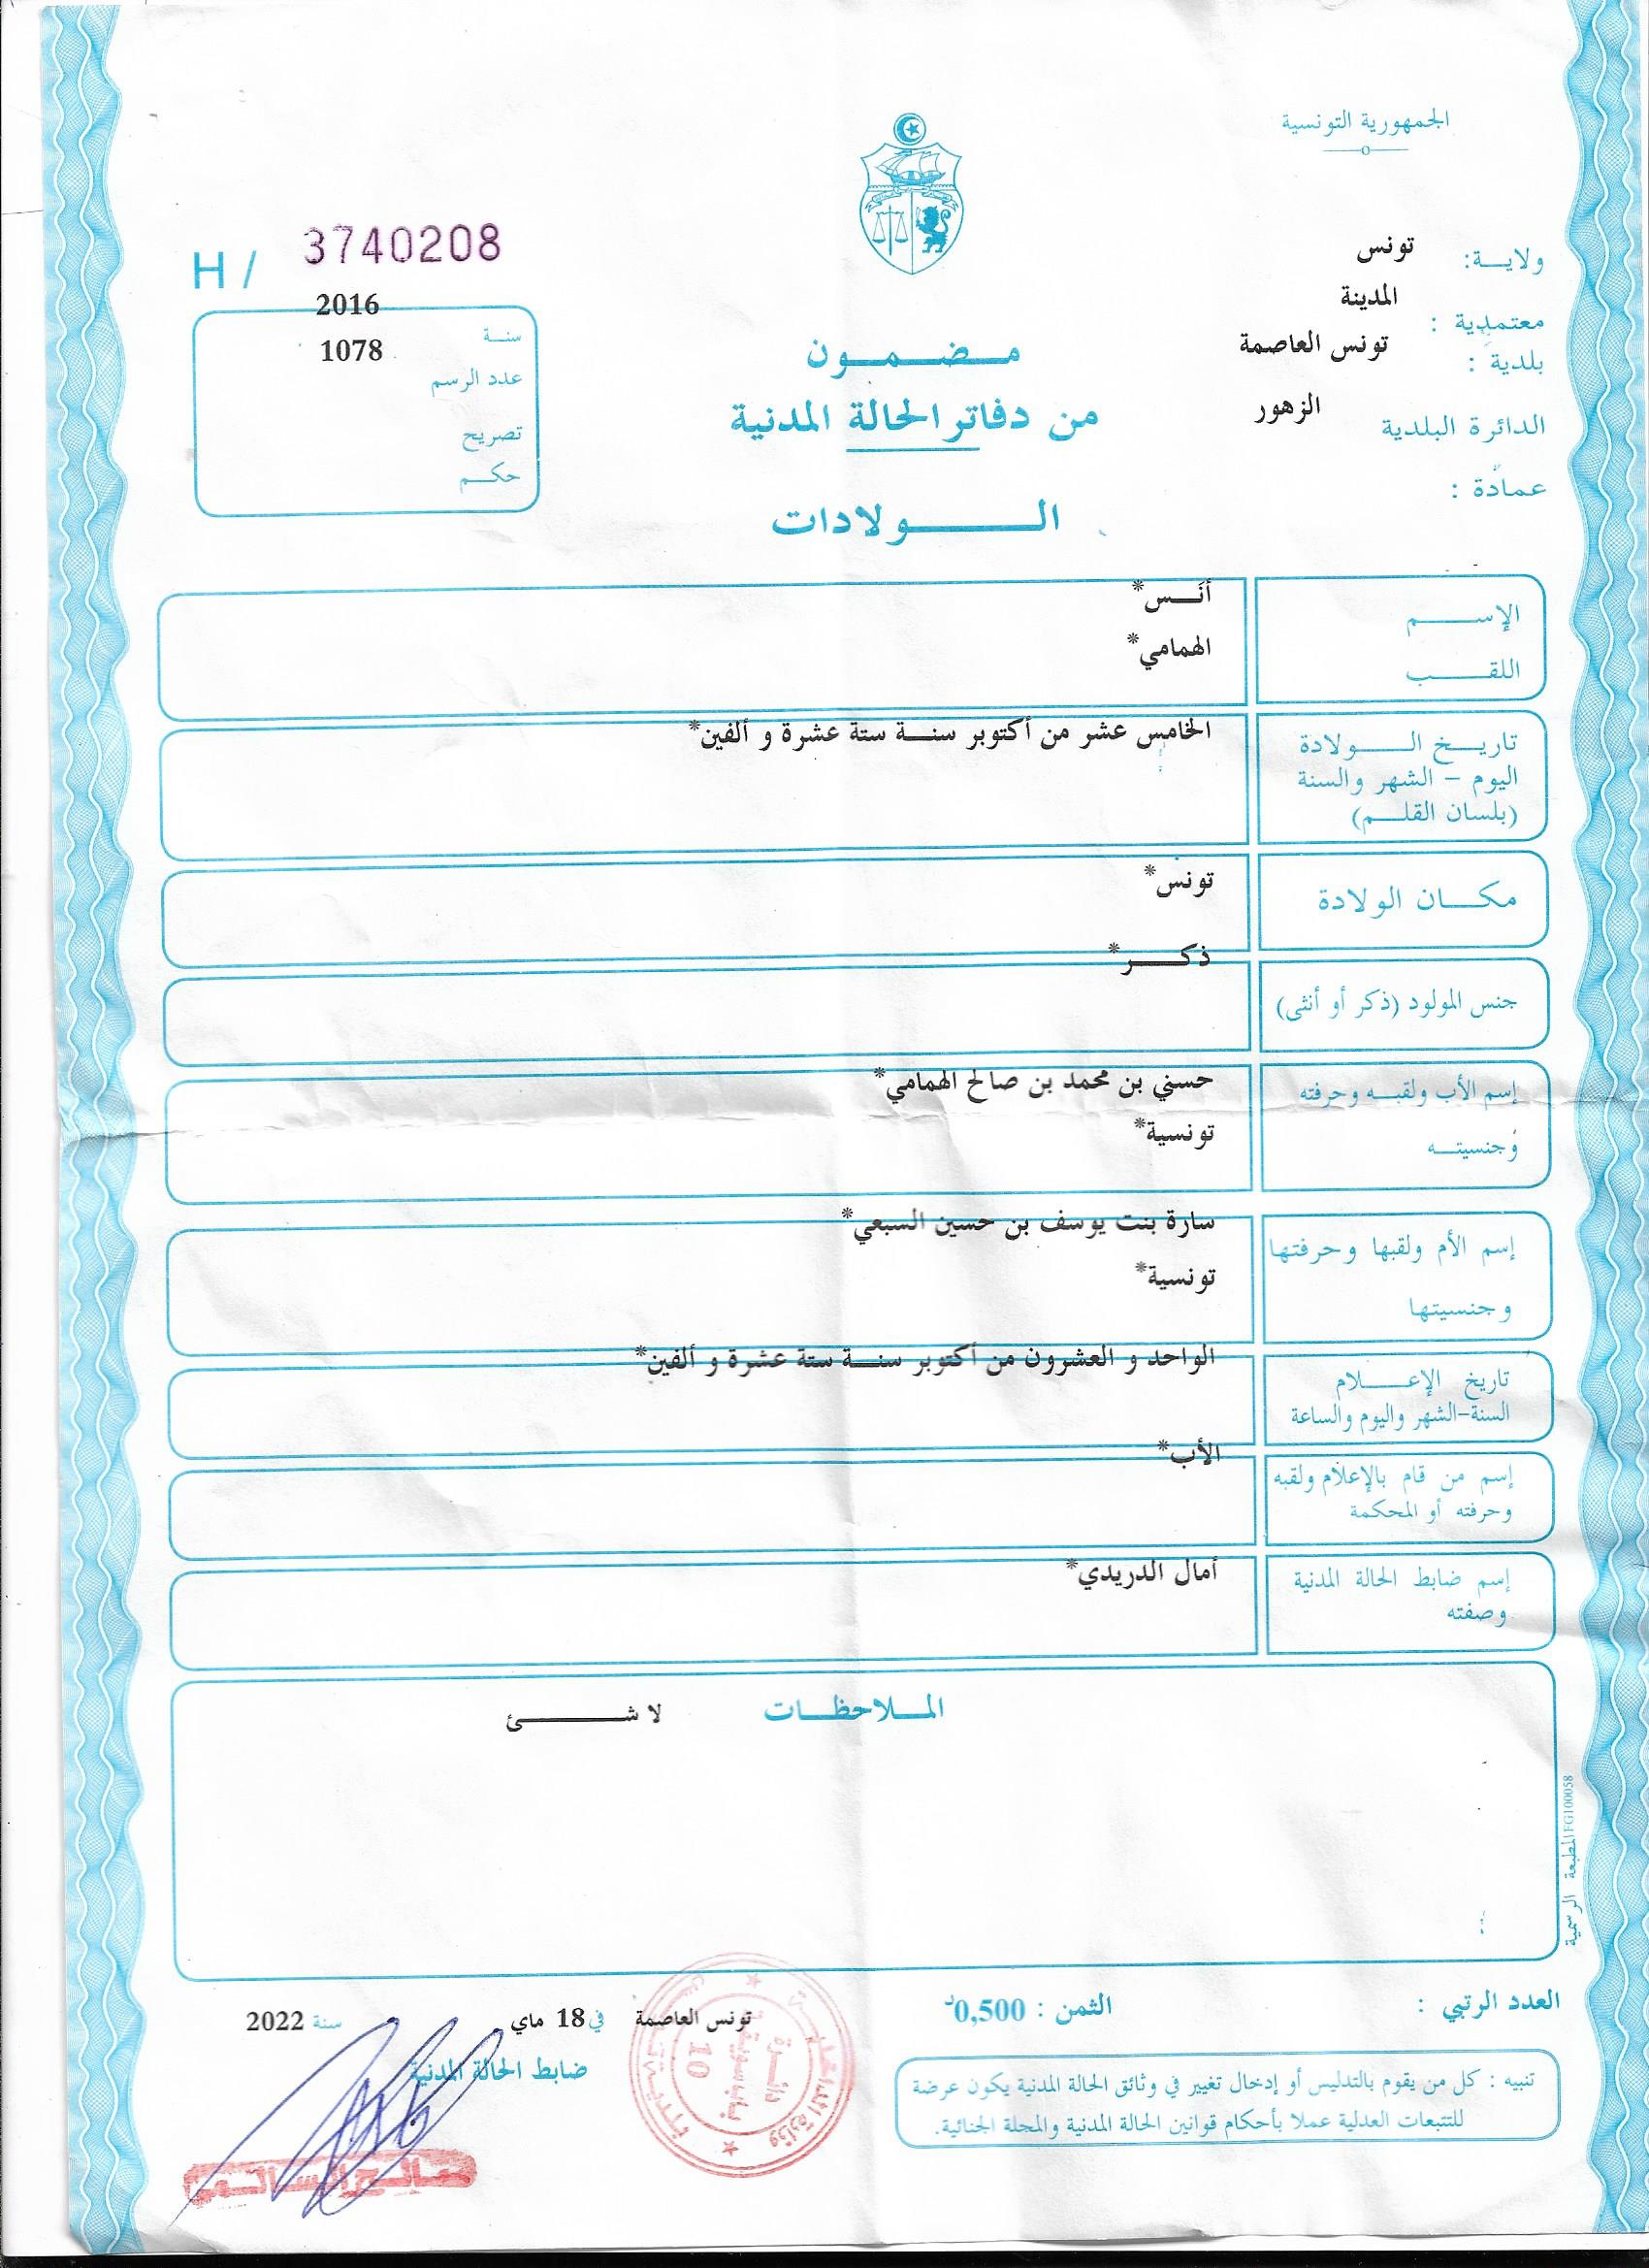 الجمهورية التونسية
ولايـــة: تونس
معتمدية : المدينة
بلدية : تونس العاصمة
الدائرة البلدية الزهور
عمادة :
H / 3740208
سنـــة 2016
عدد الرسم 1078
تصريح
حكـــم
مـــضـــمـــون
من دفاتر الحالة المدنية
الـــــــولادات
الإســــــم أنــس*
اللقــــــب الهمامي*
تاريـــخ الــــولادة الخامس عشر من أكتوبر سنـــة ستة عشرة و ألفين*
اليوم – الشهر والسنة
(بلسان القلـــم)
مكـــان الولادة تونس*
جنس المولود (ذكر أو أنثى) ذكــــر*
إسم الأب ولقبـــه وحرفته حسني بن محمد بن صالح الهمامي*
وجنسيتـــه تونسية*
إسم الأم ولقبها وحرفتها سارة بنت يوسف بن حسين السبعي*
وجنسيتها تونسية*
تاريخ الإعـــــلام الواحد و العشرون من أكتوبر سنـــة ستة عشرة و ألفين*
السنة-الشهر واليوم والساعة
إسم من قام بالإعلام ولقبه الأب*
وحرفته أو المحكمة
إسم ضابط الحالة المدنية أمال الدريدي*
وصفته
المـــلاحظـــات لا شـــــــئ
المطبعة الرسمية IFG100058
العدد الرتبي : الثمن : 0,500د
تونس العاصمة في 18 ماي سنة 2022
ضابط الحالة المدنية
تنبيه : كل من يقوم بالتدليس أو إدخال تغيير في وثائق الحالة المدنية يكون عرضة
للتتبعات العدلية عملا بأحكام قوانين الحالة المدنية والمجلة الجنائية.
دائرة
10